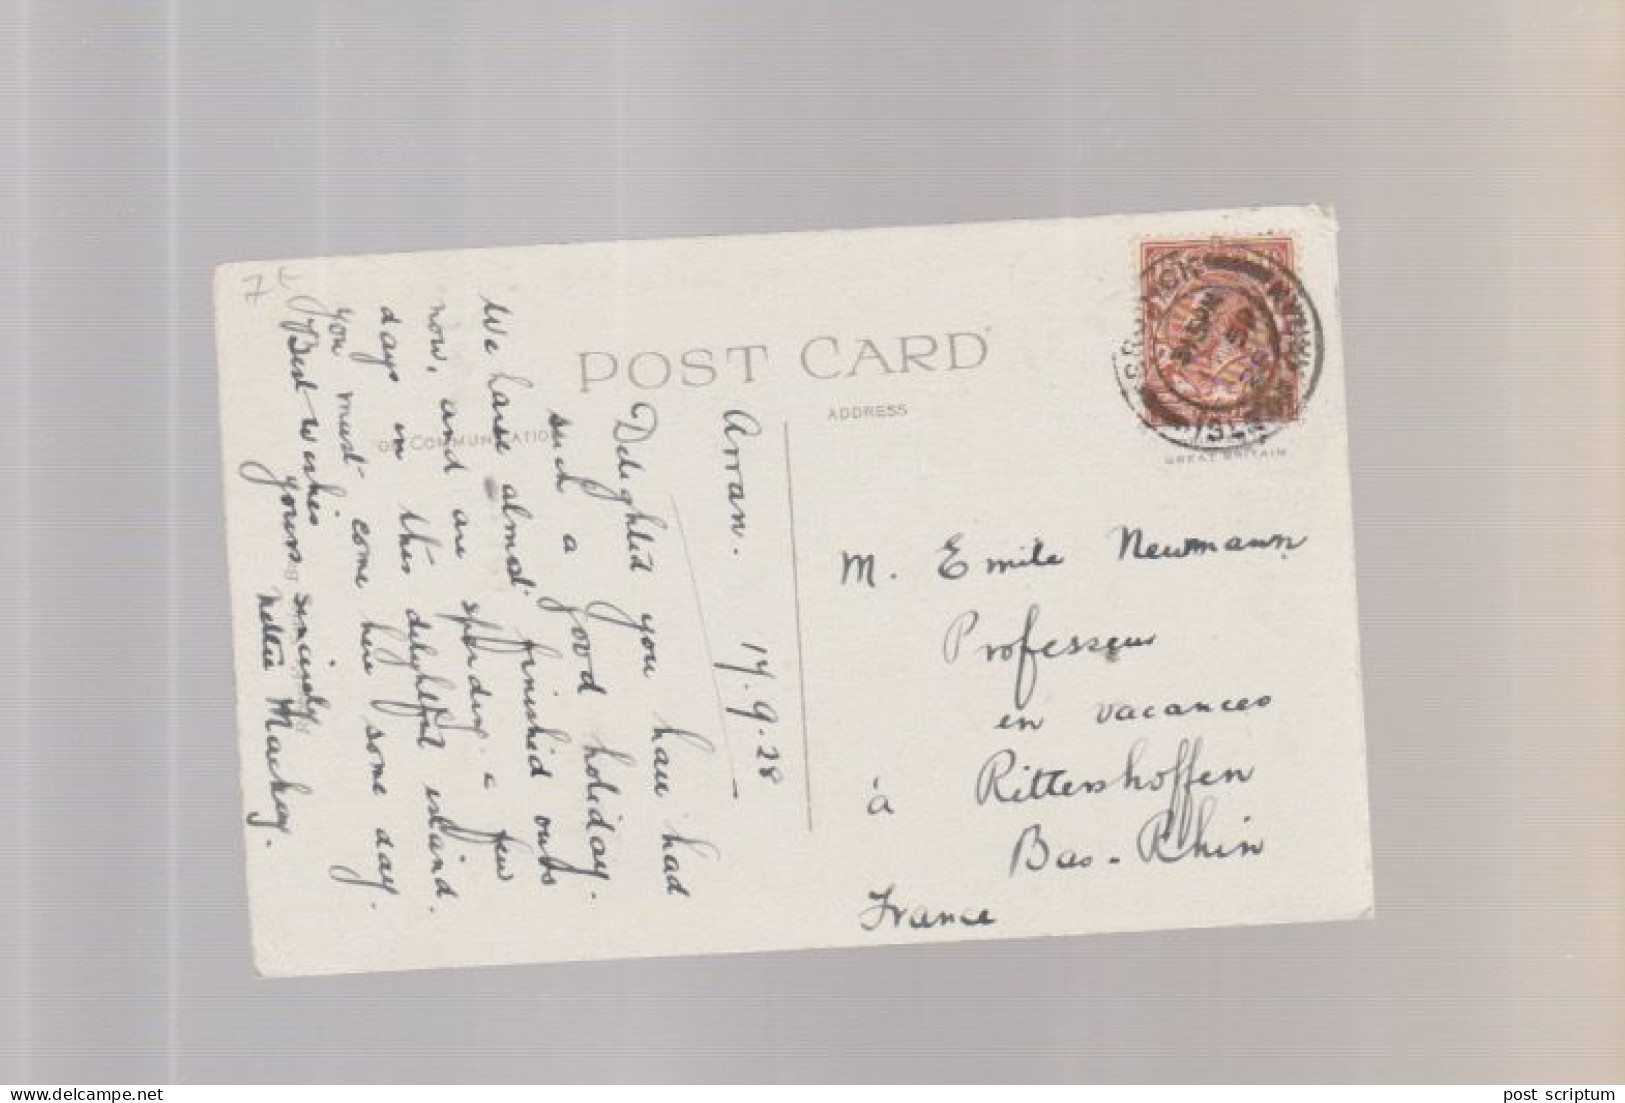 POST CARD
ADDRESS
FOR COMMUNICATION
GREAT BRITAIN
7 €
Arran. 17.9.28
Delighted you have had
such a good holiday.
We have almost finished ours
now, and are spending a few
days in this delightful island.
you must come here some day.
Best wishes
yours sincerely
Nettie Mackay.
M. Emile Neumann
Professeur
en vacances
à Rittershoffen
Bas-Rhin
France
post scriptum